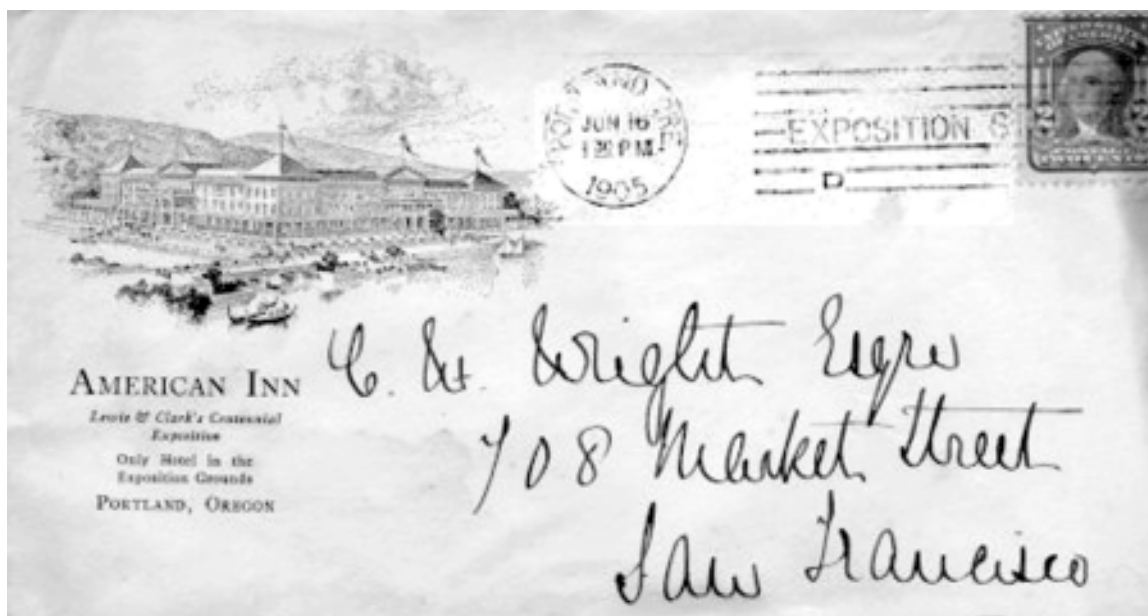 PORTLAND, ORE.
JUN 16
PM
1905
EXPOSITION S
D
UNITED STATES
OF AMERICA
AMERICAN INN
Lewis & Clark's Centennial
Exposition
Only Hotel in the
Exposition Grounds
PORTLAND, OREGON
C. W. Wright Esqre
708 Market Street
San Francisco